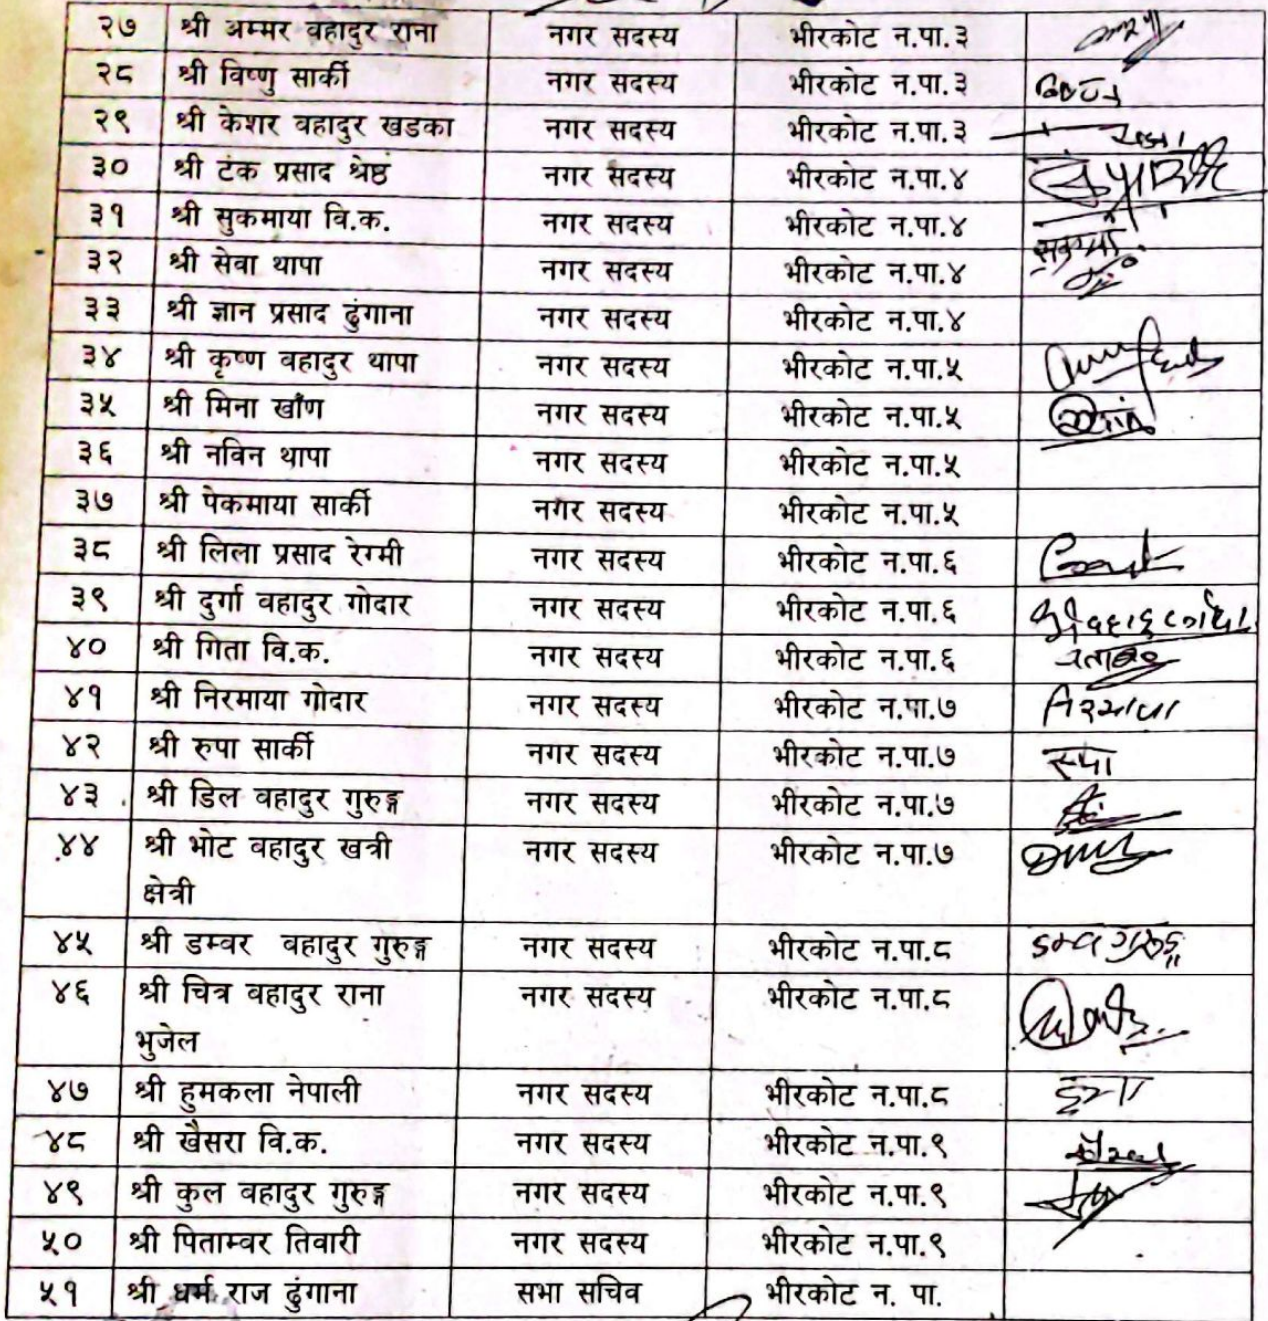 २७ श्री अम्मर वहादुर राना नगर सदस्य भीरकोट न.पा.३
२८ श्री विष्णु सार्की नगर सदस्य भीरकोट न.पा.३
२९ श्री केशर वहादुर खडका नगर सदस्य भीरकोट न.पा.३
३० श्री टंक प्रसाद श्रेष्ठ नगर सदस्य भीरकोट न.पा.४
३१ श्री सुकमाया वि.क. नगर सदस्य भीरकोट न.पा.४
३२ श्री सेवा थापा नगर सदस्य भीरकोट न.पा.४
३३ श्री ज्ञान प्रसाद ढुंगाना नगर सदस्य भीरकोट न.पा.४
३४ श्री कृष्ण वहादुर थापा नगर सदस्य भीरकोट न.पा.५
३५ श्री मिना खाँण नगर सदस्य भीरकोट न.पा.५
३६ श्री नविन थापा नगर सदस्य भीरकोट न.पा.५
३७ श्री पेकमाया सार्की नगर सदस्य भीरकोट न.पा.५
३८ श्री लिला प्रसाद रेग्मी नगर सदस्य भीरकोट न.पा.६
३९ श्री दुर्गा वहादुर गोदार नगर सदस्य भीरकोट न.पा.६
४० श्री गिता वि.क. नगर सदस्य भीरकोट न.पा.६
४१ श्री निरमाया गोदार नगर सदस्य भीरकोट न.पा.७ निरमाया
४२ श्री रुपा सार्की नगर सदस्य भीरकोट न.पा.७ रुपा
४३ श्री डिल वहादुर गुरुङ्ग नगर सदस्य भीरकोट न.पा.७
४४ श्री भोट वहादुर खत्री नगर सदस्य भीरकोट न.पा.७
क्षेत्री
४५ श्री डम्वर वहादुर गुरुङ्ग नगर सदस्य भीरकोट न.पा.८ डम्व गुरुङ्ग
४६ श्री चित्र वहादुर राना नगर सदस्य भीरकोट न.पा.८
भुजेल
४७ श्री हुमकला नेपाली नगर सदस्य भीरकोट न.पा.८
४८ श्री खैसरा वि.क. नगर सदस्य भीरकोट न.पा.९
४९ श्री कुल वहादुर गुरुङ्ग नगर सदस्य भीरकोट न.पा.९
५० श्री पिताम्वर तिवारी नगर सदस्य भीरकोट न.पा.९
५१ श्री धर्म राज ढुंगाना सभा सचिव भीरकोट न. पा.